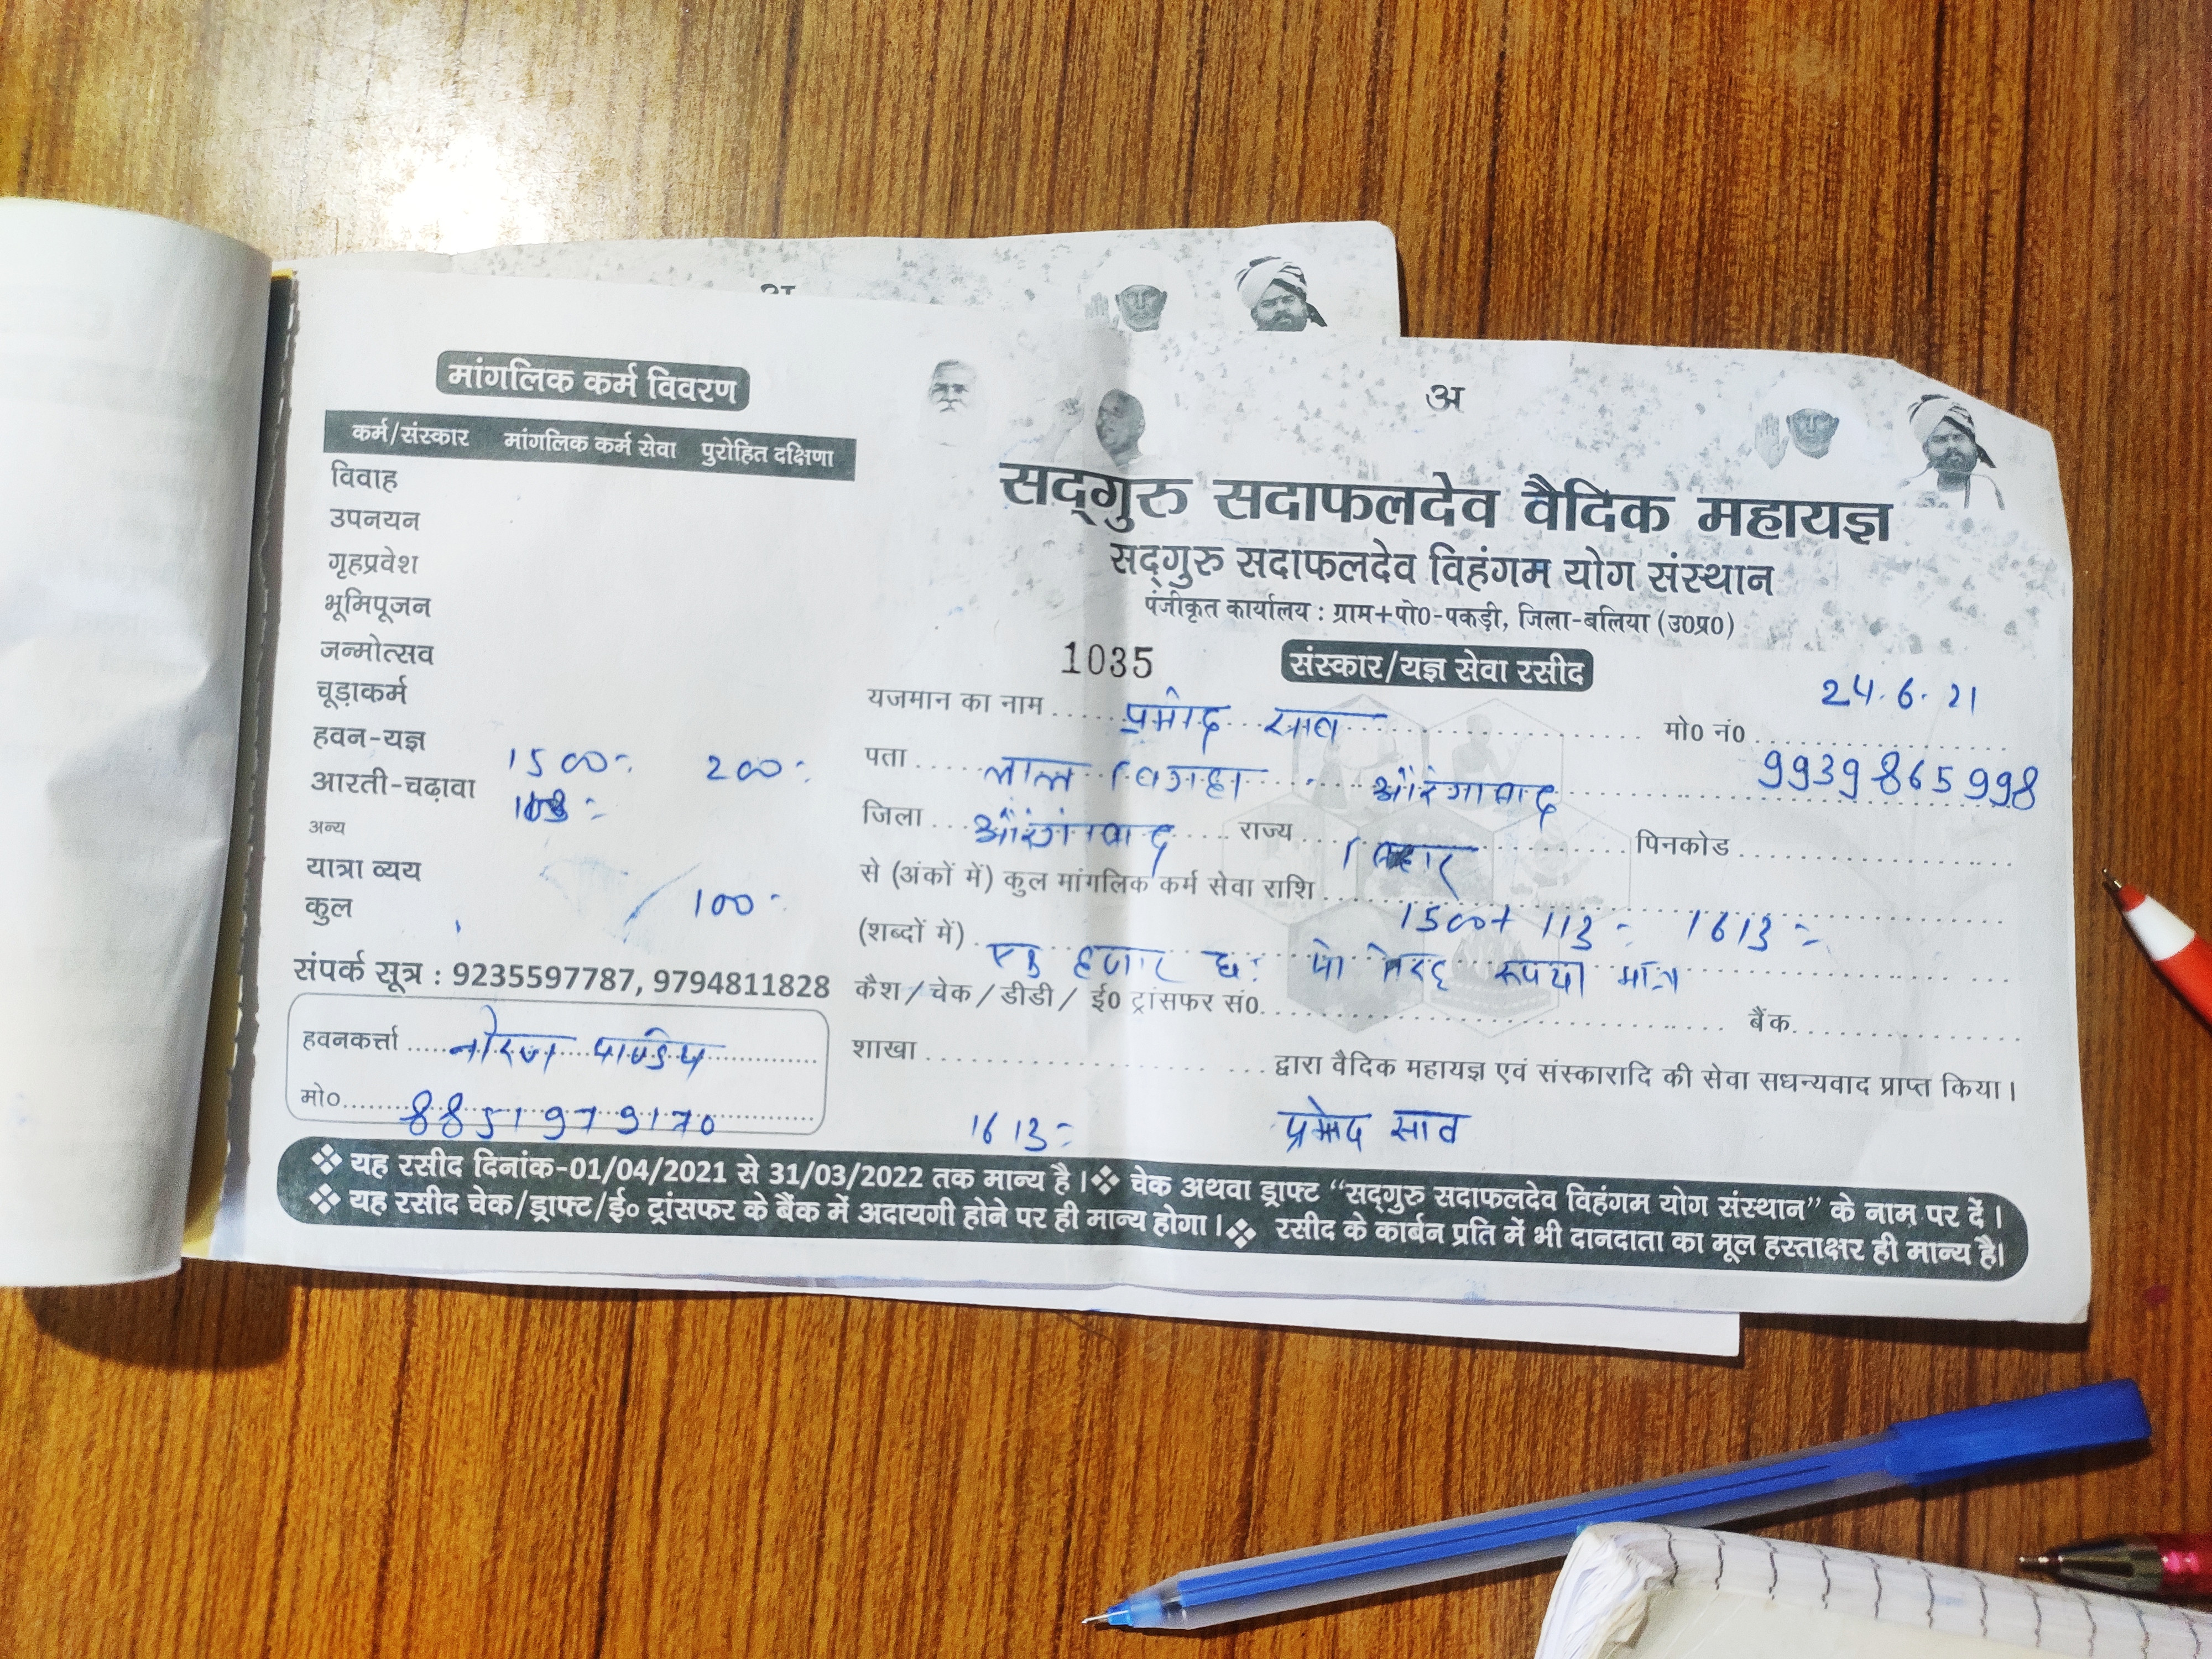 अ
मांगलिक कर्म विवरण
कर्म/संस्कार मांगलिक कर्म सेवा पुरोहित दक्षिणा
विवाह
उपनयन
गृहप्रवेश
भूमिपूजन
जन्मोत्सव
चूड़ाकर्म
हवन-यज्ञ 1500 200
आरती-चढ़ावा
अन्य
यात्रा व्यय
कुल 100
संपर्क सूत्र : 9235597787, 9794811828
हवनकर्त्ता नीरज पाण्डेय
मो० 8851979170
अ
सद्गुरु सदाफलदेव वैदिक महायज्ञ
सद्गुरु सदाफलदेव विहंगम योग संस्थान
पंजीकृत कार्यालय : ग्राम+पो0-पकड़ी, जिला-बलिया (उ0प्र0)
1035 संस्कार/यज्ञ सेवा रसीद 24.6.21
यजमान का नाम प्रमोद साव मो0 नं0 9939865998
पता लाल बिगहा औरंगाबाद
जिला औरंगाबाद राज्य बिहार पिनकोड
से (अंकों में) कुल मांगलिक कर्म सेवा राशि 1500+ 113 = 1613 =
(शब्दों में) एक हजार छः सो तेरह रूपया मात्र
कैश / चेक / डीडी / ई0 ट्रांसफर सं0. बैंक
शाखा द्वारा वैदिक महायज्ञ एवं संस्कारादि की सेवा सधन्यवाद प्राप्त किया।
1613 = प्रमोद साव
❖ यह रसीद दिनांक-01/04/2021 से 31/03/2022 तक मान्य है। ❖ चेक अथवा ड्राफ्ट “सद्गुरु सदाफलदेव विहंगम योग संस्थान” के नाम पर दें।
❖ यह रसीद चेक/ड्राफ्ट/ई० ट्रांसफर के बैंक में अदायगी होने पर ही मान्य होगा। ❖ रसीद के कार्बन प्रति में भी दानदाता का मूल हस्ताक्षर ही मान्य है।